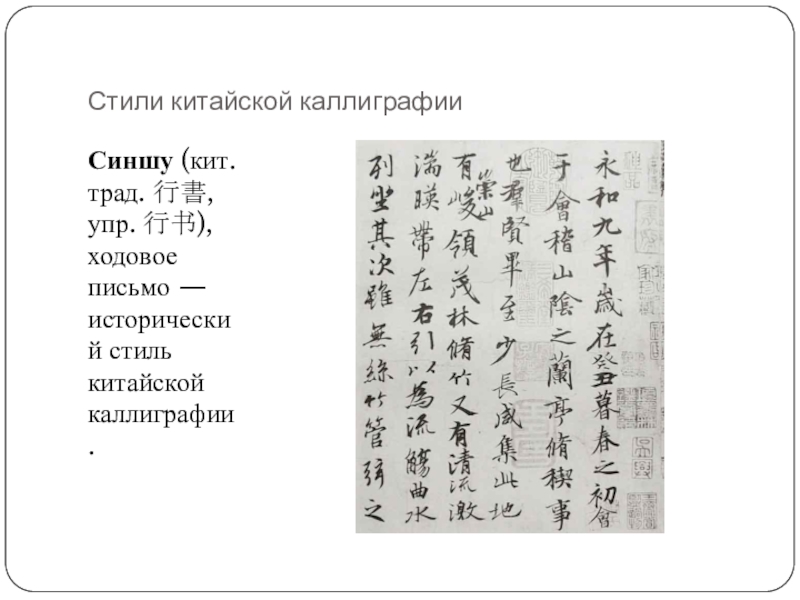 Стили китайской каллиграфии
Синшу (кит.
трад. 行書,
упр. 行书),
ходовое
письмо —
исторически
й стиль
китайской
каллиграфии
.
永和九年歲在癸丑暮春之初會
于會稽山陰之蘭亭脩稧事
也羣賢畢至少長咸集此地
有崇山峻領茂林脩竹又有清流激
湍暎帶左右引以為流觴曲水
列坐其次雖無絲竹管弦之